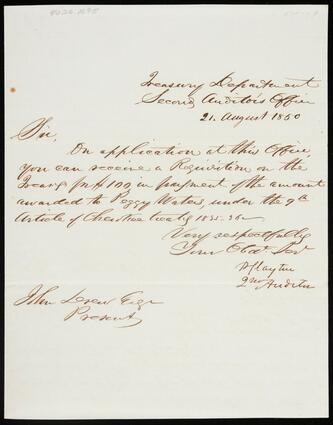 4026.1095
Treasury Department
Second Auditor's Office
21. August 1850
Sir,
On application at this Office,
you can receive a Requisition on the
Treasy for $100, in payment of the amount
awarded to Peggy Waters, under the 9th
Article of Cherokee treaty 1835-36
Very respectfully
Your Obdt Servt
P Clayton
2nd Auditor
John Drew Esqr
Present